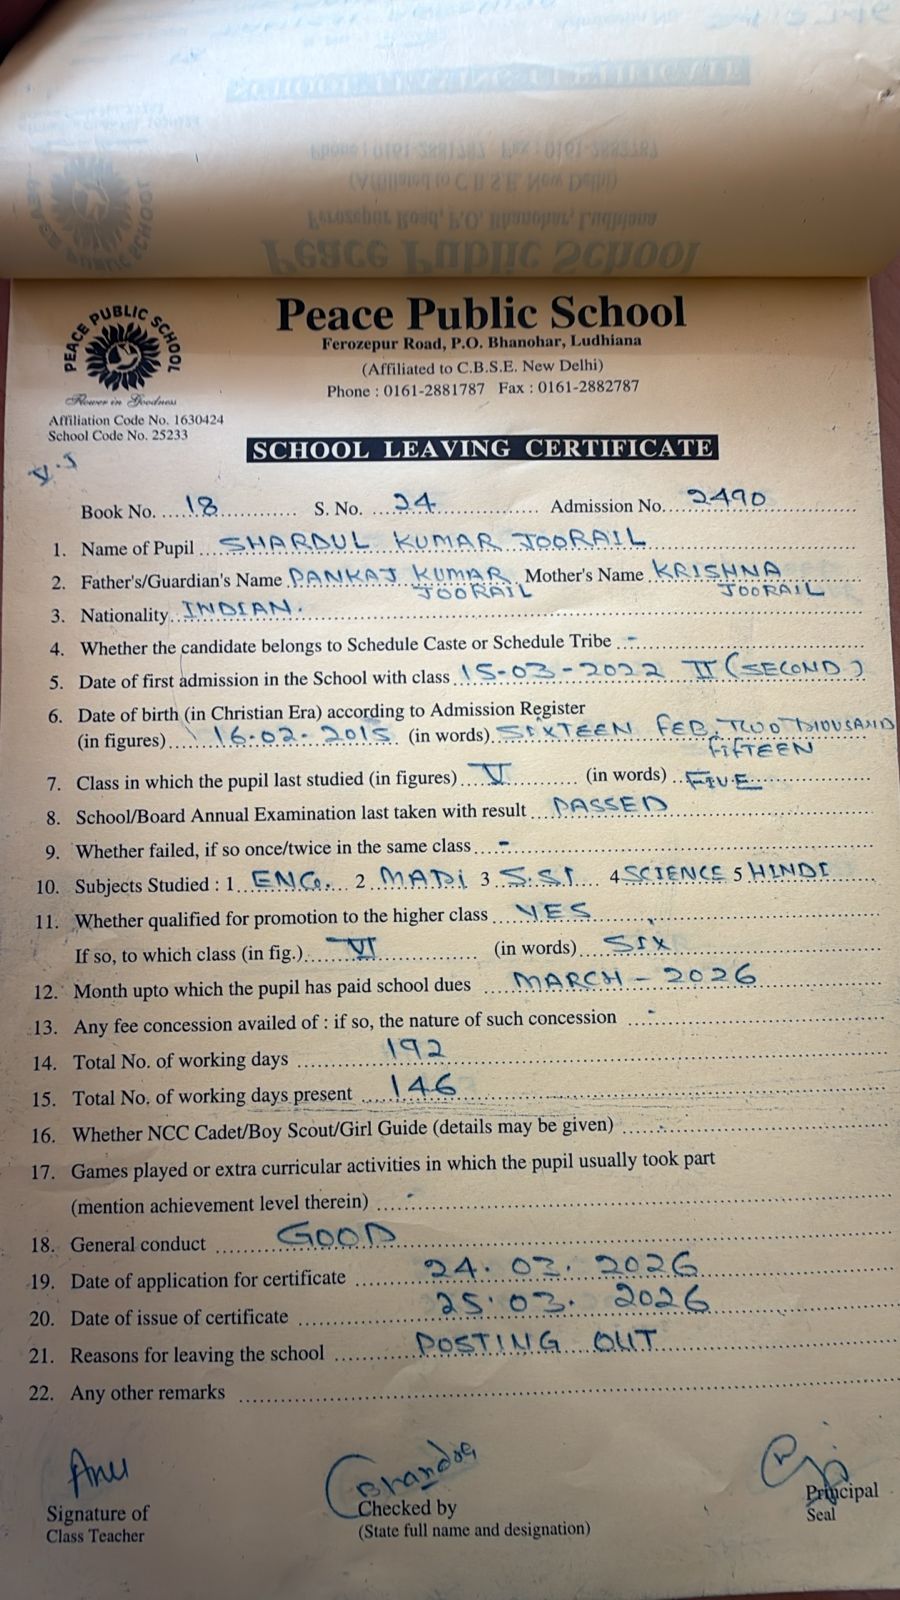 Peace Public School
Ferozepur Road, P.O. Bhanohar, Ludhiana
(Affiliated to C.B.S.E. New Delhi)
Phone : 0161-2881787 Fax : 0161-2882787
PEACE PUBLIC SCHOOL
Flower in Goodness
Affiliation Code No. 1630424
School Code No. 25233
SCHOOL LEAVING CERTIFICATE
Book No. 18 S. No. 24 Admission No. 2490
1. Name of Pupil SHARDUL KUMAR JOORAIL
2. Father's/Guardian's Name PANKAJ KUMAR JOORAIL Mother's Name KRISHNA JOORAIL
3. Nationality INDIAN.
4. Whether the candidate belongs to Schedule Caste or Schedule Tribe -
5. Date of first admission in the School with class 15-03-2022 II (SECOND)
6. Date of birth (in Christian Era) according to Admission Register
(in figures) 16.02.2015 (in words) SIXTEEN FEB, TWO THOUSAND
FIFTEEN
7. Class in which the pupil last studied (in figures) V (in words) FIVE
8. School/Board Annual Examination last taken with result PASSED
9. Whether failed, if so once/twice in the same class -
10. Subjects Studied : 1 ENG. 2 3 S.ST 4 SCIENCE 5 HINDI
11. Whether qualified for promotion to the higher class YES
If so, to which class (in fig.) VI (in words) SIX
12. Month upto which the pupil has paid school dues MARCH - 2026
13. Any fee concession availed of : if so, the nature of such concession -
14. Total No. of working days 192
15. Total No. of working days present 146
16. Whether NCC Cadet/Boy Scout/Girl Guide (details may be given) -
17. Games played or extra curricular activities in which the pupil usually took part
(mention achievement level therein) -
18. General conduct GOOD
19. Date of application for certificate 24.03.2026
20. Date of issue of certificate 25.03.2026
21. Reasons for leaving the school POSTING OUT
22. Any other remarks
Signature of
Class Teacher
Checked by
(State full name and designation)
Principal
Seal